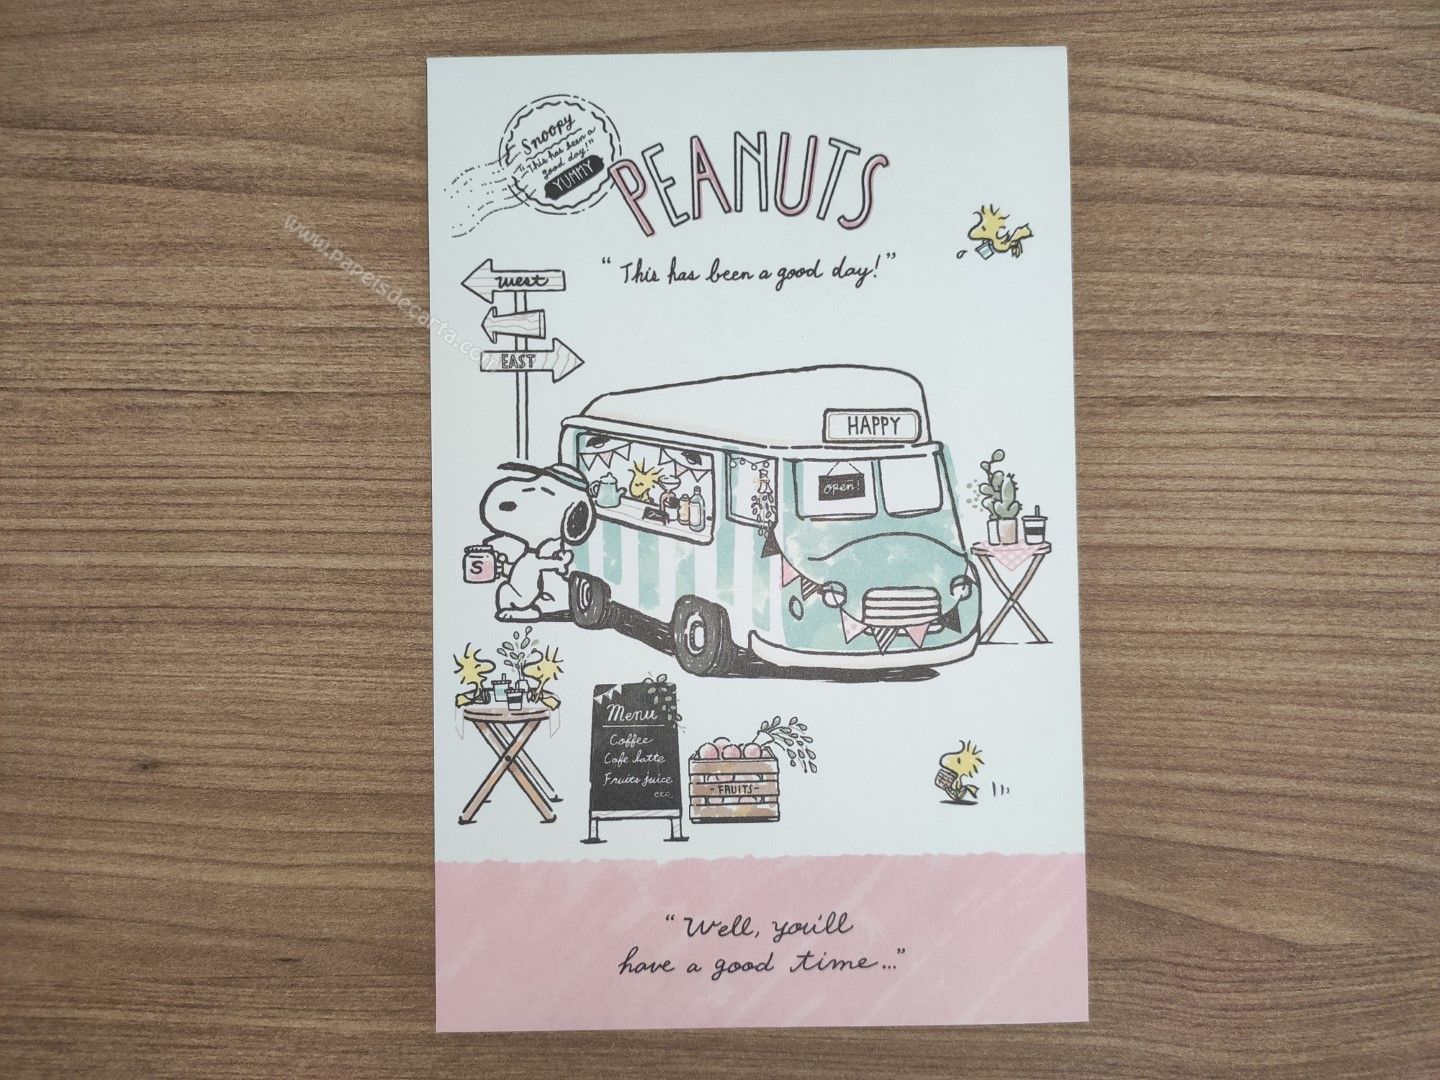 Snoopy
"This has been a
good day!"
YUMMY
PEANUTS
"This has been a good day!"
west
EAST
www.papeisdecarta.com
HAPPY
open!
S
Menu
Coffee
Cafe latte
Fruits juice
exc
-FRUITS-
"Well, you'll
have a good time..."